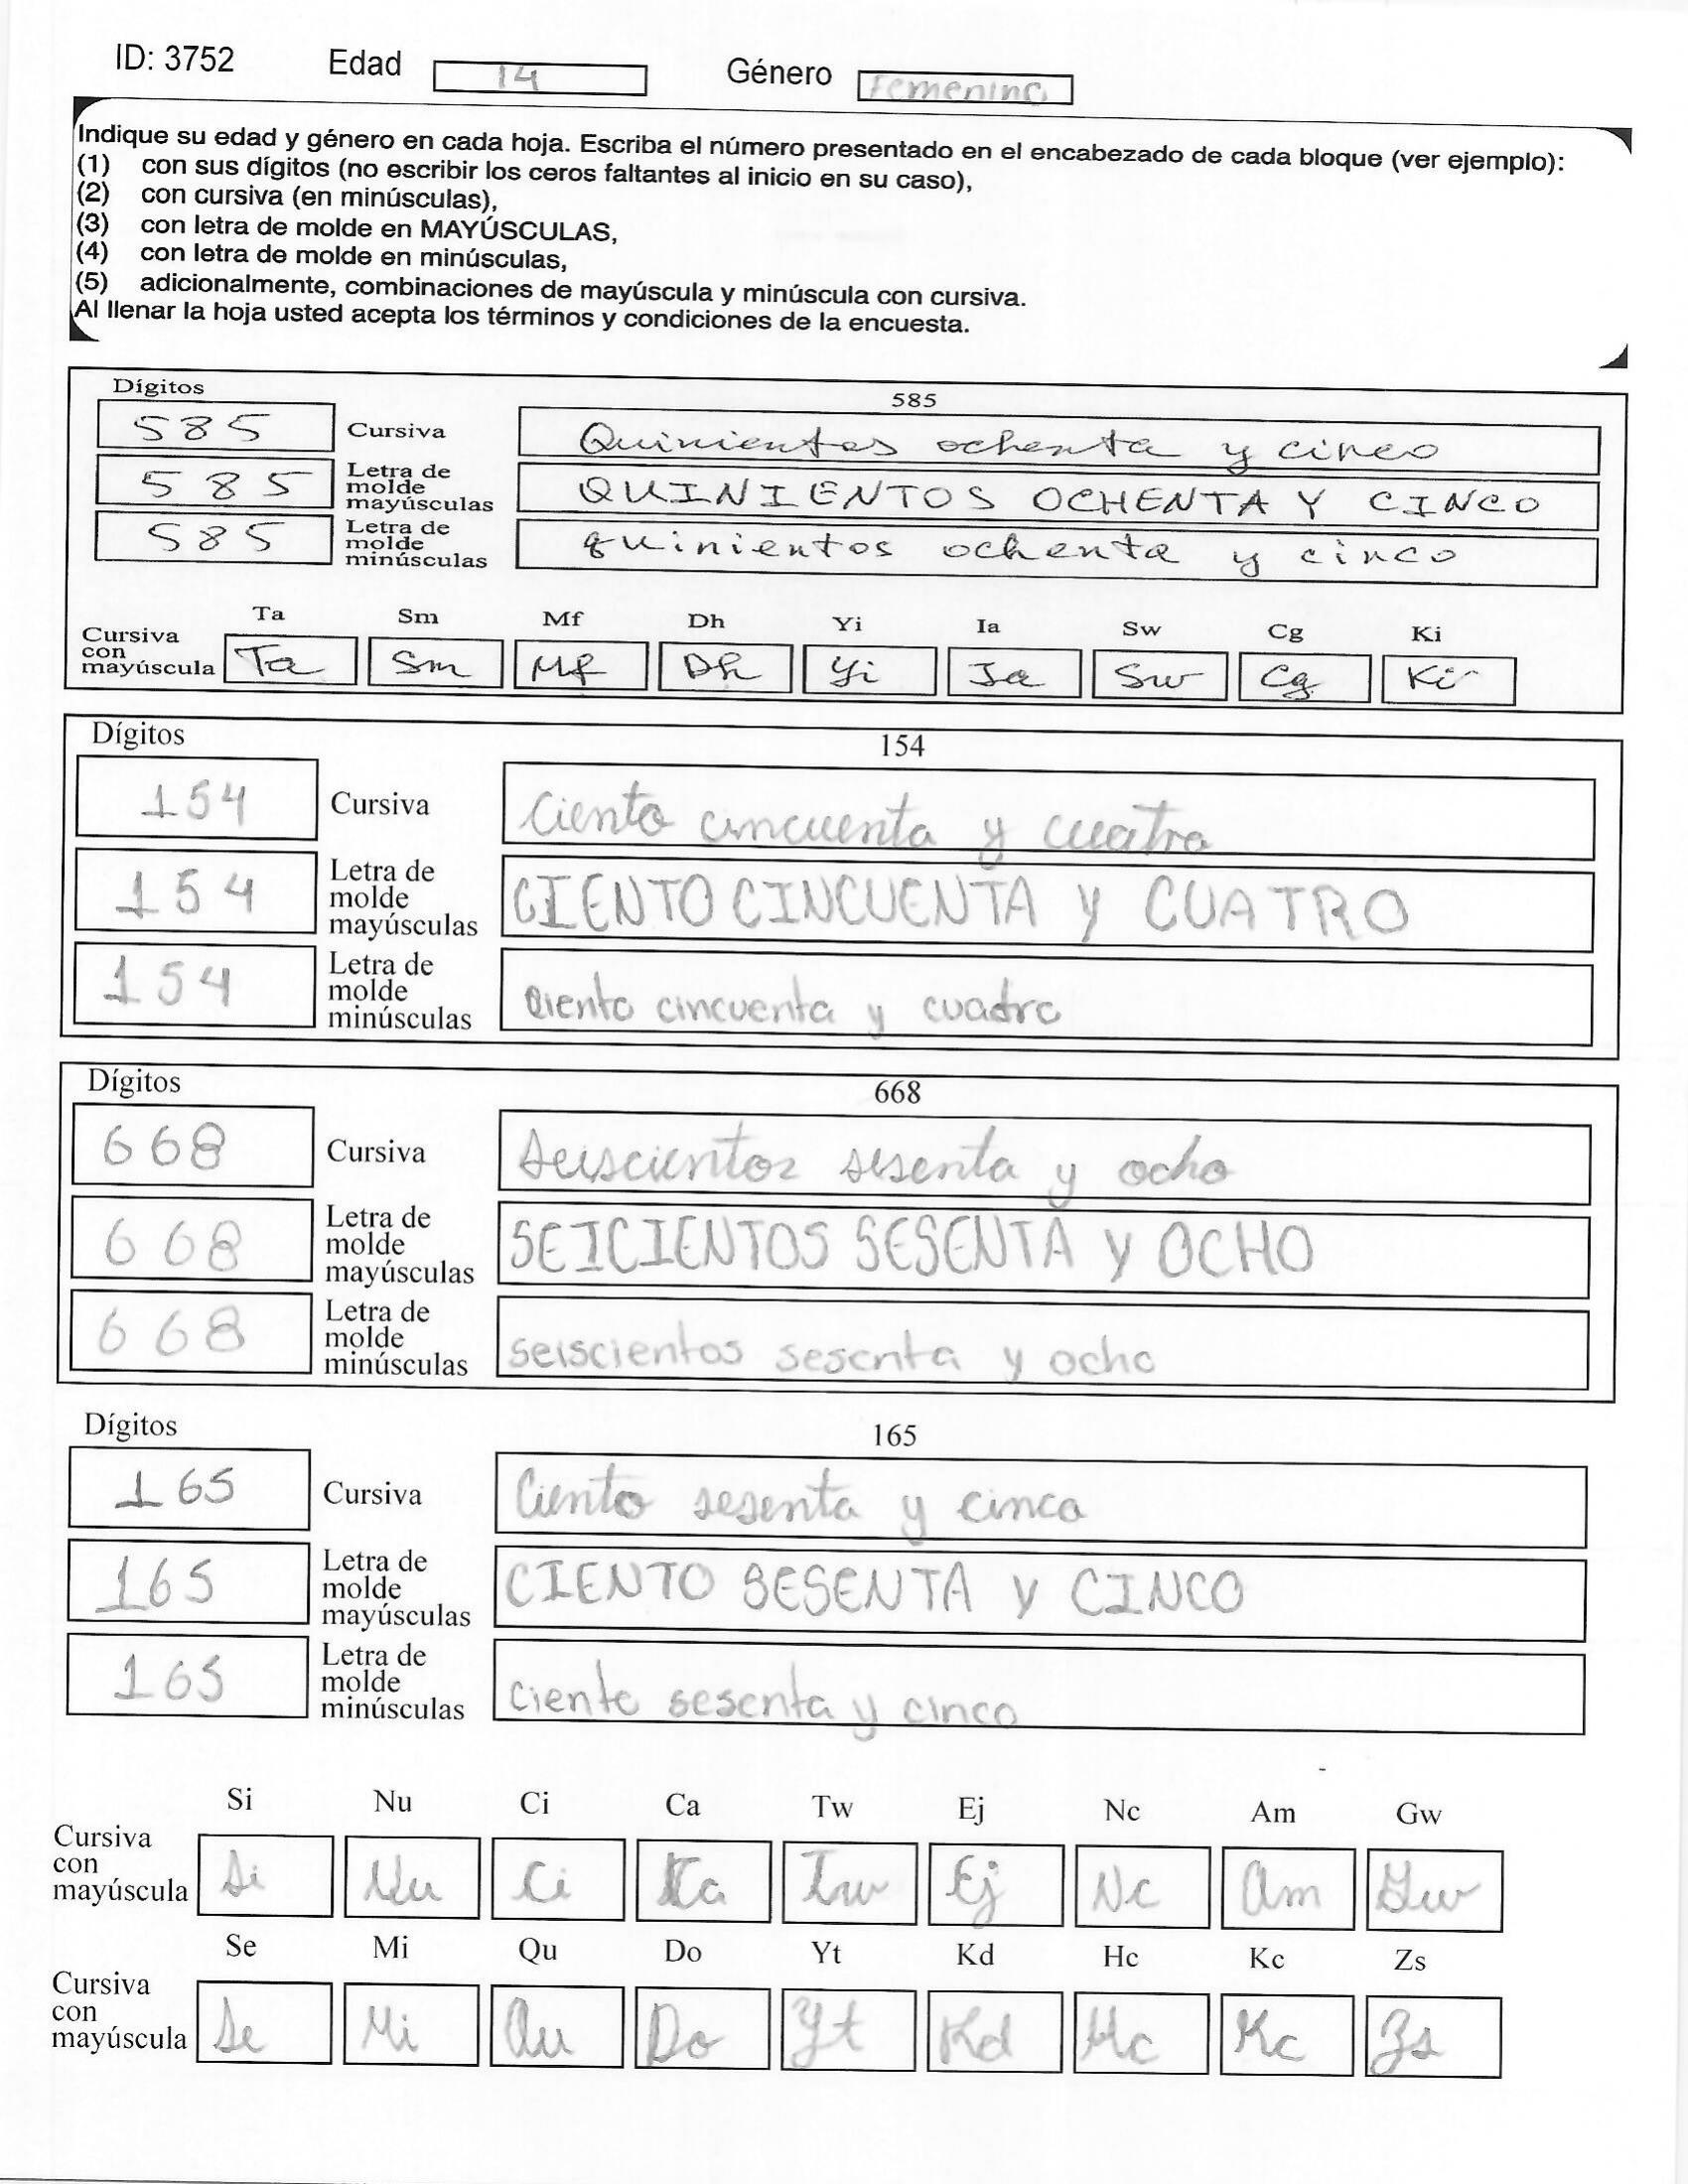 ID: 3752 Edad 14 Género Femenino
Indique su edad y género en cada hoja. Escriba el número presentado en el encabezado de cada bloque (ver ejemplo):
(1) con sus dígitos (no escribir los ceros faltantes al inicio en su caso),
(2) con cursiva (en minúsculas),
(3) con letra de molde en MAYÚSCULAS,
(4) con letra de molde en minúsculas,
(5) adicionalmente, combinaciones de mayúscula y minúscula con cursiva.
Al llenar la hoja usted acepta los términos y condiciones de la encuesta.
Dígitos 585
585 Cursiva Quinientos ochenta y cinco
585 Letra de molde mayúsculas QUINIENTOS OCHENTA Y CINCO
585 Letra de molde minúsculas quinientos ochenta y cinco
Ta Sm Mf Dh Yi Ia Sw Cg Ki
Cursiva con mayúscula Ta Sm Mf Dh Yi Ia Sw Cg Ki
Dígitos 154
154 Cursiva Ciento cincuenta y cuatro
154 Letra de molde mayúsculas CIENTO CINCUENTA y CUATRO
154 Letra de molde minúsculas ciento cincuenta y cuadro
Dígitos 668
668 Cursiva seiscientos sesenta y ocho
668 Letra de molde mayúsculas SEICIENTOS SESENTA y OCHO
668 Letra de molde minúsculas seiscientos sesenta y ocho
Dígitos 165
165 Cursiva Ciento sesenta y cinco
165 Letra de molde mayúsculas CIENTO SESENTA y CINCO
165 Letra de molde minúsculas ciento sesenta y cinco
Si Nu Ci Ca Tw Ej Nc Am Gw
Cursiva con mayúscula Si Nu Ci Ca Tw Ej Nc Am Gw
Se Mi Qu Do Yt Kd Hc Kc Zs
Cursiva con mayúscula Se Mi Qu Do Yt Kd Hc Kc Zs